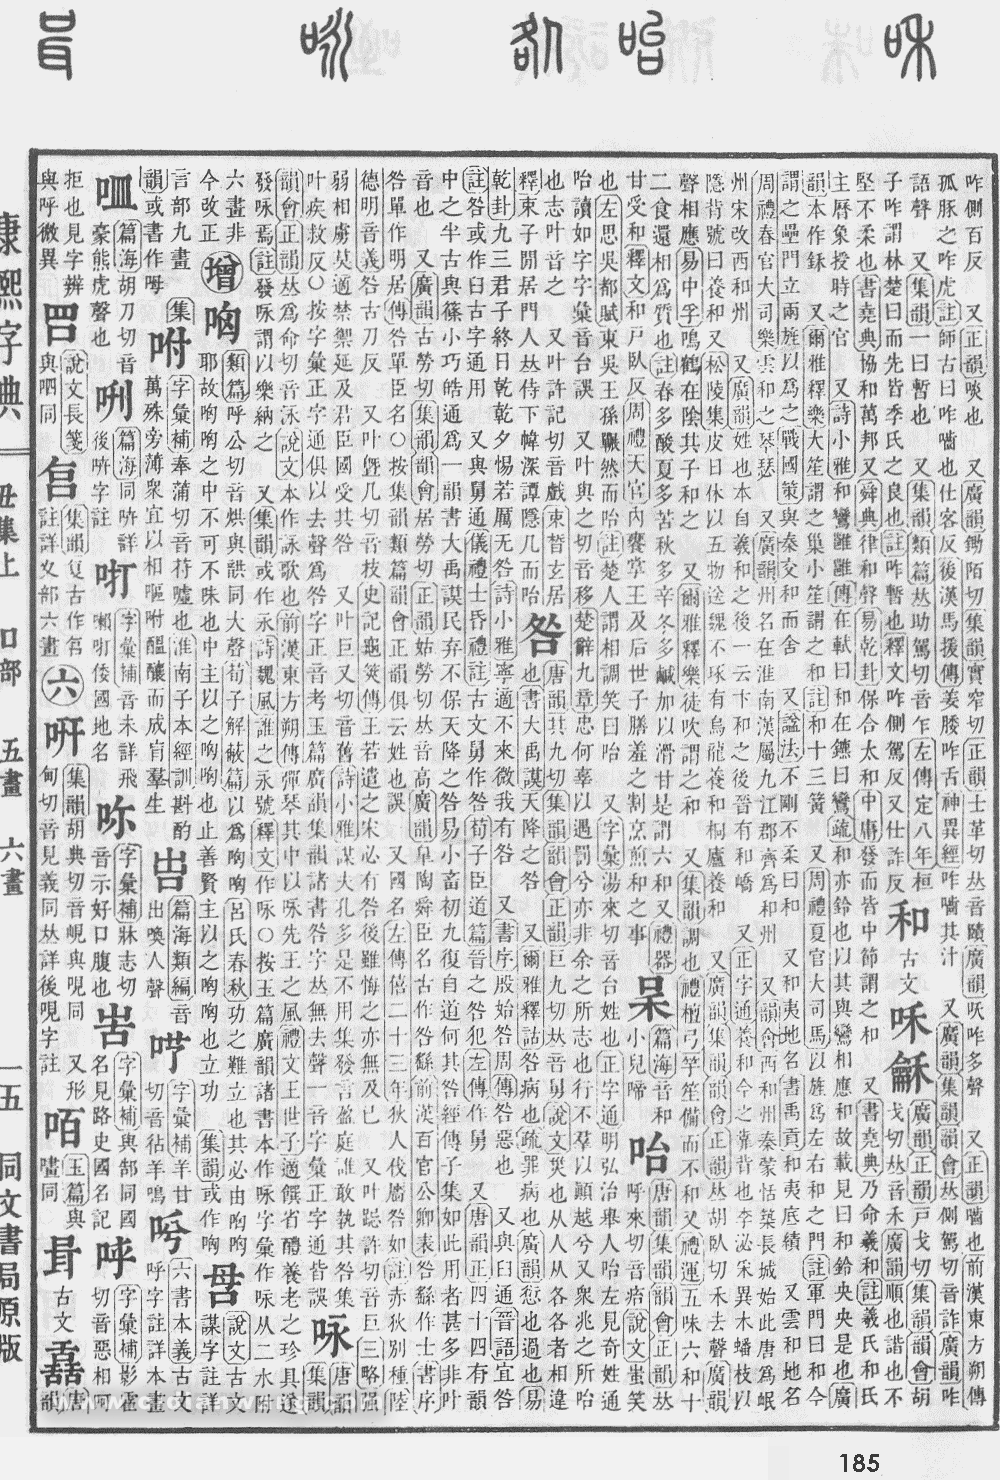 咋側百反 又正韻啖也 又廣韻鋤陌切集韻實窄切正韻士革切𠀤音賾廣韻㖡咋多聲 又正韻嚙也前漢東方朔傳
孤豚之咋虎註師古曰咋嚙也仕客反後漢馬援傳姜腰咋舌神異經咋嚙其汁 又廣韻集韻韻會𠀤側駕切音詐廣韻咋
語聲 又集韻一曰暫也 又集韻類篇𠀤助駕切音乍左傳定八年桓
子咋謂林楚曰而先皆季氏之良也註咋暫也釋文咋側駕反又仕詐反
和 古文咊龢 廣韻正韻戸戈切集韻韻會胡
戈切𠀤音禾廣韻順也諧也不
堅不柔也書堯典協和萬邦又舜典律和聲易乾卦保合太和中庸發而皆中節謂之和 又書堯典乃命羲和註羲氏和氏
主曆象授時之官 又詩小雅和鸞雝雝傳在軾曰和在鑣曰鸞疏和亦鈴也以其與鸞相應和故載見曰和鈴央央是也廣
韻本作鉌 又爾雅釋樂大笙謂之巢小笙謂之和註和十三簧 又周禮夏官大司馬以旌爲左右和之門註軍門曰和今
謂之壘門立兩旌以爲之戰國策與秦交和而舍 又諡法不剛不柔曰和 又和夷地名書禹貢和夷厎績 又雲和地名
周禮春官大司樂雲和之琴瑟 又廣韻州名在淮南漢屬九江郡齊爲和州 又韻會西和州秦蒙恬築長城始此唐爲岷
州宋改西和州 又廣韻姓也本自羲和之後一云卞和之後晉有和嶠 又正字通養和今之靠背也李泌采異木蟠枝以
隱背號曰養和又松陵集皮日休以五物送魏不琢有烏龍養和桐廬養和 又廣韻集韻韻會正韻𠀤胡臥切禾去聲廣韻
聲相應易中孚鳴鶴在陰其子和之 又爾雅釋樂徒吹謂之和 又集韻調也禮檀弓竽笙備而不和又禮運五味六和十
二食還相爲質也註春多酸夏多苦秋多辛冬多鹹加以滑甘是謂六和又禮器
甘受和釋文和戸臥反周禮天官內饔掌王及后世子膳羞之割烹煎和之事
呆 篇海音和小兒啼
咍 唐韻集韻韻會正韻𠀤
呼來切音㾂說文蚩笑
也左思吳都賦東吳王孫囅然而咍註楚人謂相調笑曰咍 又字彙湯來切音台姓也正字通明弘治舉人咍左見奇姓通
咍讀如字字彙音台誤 又叶與之切音移楚辭九章忠何辜以遇罰兮亦非余之所志也行不羣以顚越兮又衆兆之所咍
也志叶音之 又叶許記切音戲束晳玄居
釋束子閒居門人𠀤侍下幃深譚隱几而咍
咎 唐韻其九切集韻韻會正韻巨九切𠀤音舅說文災也从人从各各者相違
也書大禹謨天降之咎 又爾雅釋詁咎病也疏罪病也廣韻愆也過也易
乾卦九三君子終日乾乾夕惕若厲无咎詩小雅寧適不來微我有咎 又書序殷始咎周傳咎惡也 又與臼通晉語宜咎
註咎或作臼古字通用 又與舅通儀禮士昏禮註古文舅作咎荀子臣道篇晉之咎犯左傳作舅 又唐韻正四十四有韻
中之半古與篠小巧皓通爲一韻書大禹謨民弃不保天降之咎易小畜初九復自道何其咎經傳子集如此用者甚多非叶
音也 又廣韻古勞切集韻韻會居勞切正韻姑勞切𠀤音高廣韻皐陶舜臣名古作咎繇前漢百官公卿表咎繇作士書序
咎單作明居傳咎單臣名○按集韻類篇韻會正韻俱云姓也誤 又國名左傳僖二十三年狄人伐廧咎如註赤狄別種陸
德明音義咎古刀反 又叶曁几切音枝史記龜筴傳王若遣之宋必有咎後雖悔之亦無及已 又叶跽許切音巨三略强
弱相虜莫適禁禦延及君臣國受其咎 又叶巨又切音舊詩小雅謀夫孔多是不用集發言盈庭誰敢執其咎集
叶疾救反○按字彙正字通俱以去聲爲咎字正音考玉篇廣韻集韻諸書咎字𠀤無去聲一音字彙正字通皆誤
咏 唐韻集韻
韻會正韻𠀤爲命切音泳說文本作詠歌也前漢東方朔傳彈琴其中以咏先王之風禮文王世子適饌省醴養老之珍具遂
發咏焉註發咏謂以樂納之 又集韻或作永詩魏風誰之永號釋文作咏○按玉篇廣韻諸書本作咏字彙作咏从二水附
六畫非今改正
增
哅 類篇呼公切音烘與訌同大聲荀子解蔽篇以爲哅哅呂氏春秋功之難立也其必由哅哅
耶故哅哅之中不可不味也中主以之哅哅也止善賢主以之哅哅也立功 集韻或作哅
說文古文謀字註詳
言部九畫 集韻或書作呣
咐 字彙補奉蒲切音苻噓也淮南子本經訓斟酌
萬殊旁薄衆宜以相嘔咐醞釀而成育羣生
篇海類編音出喚人聲
字彙補羊甘切音㸬羊鳴
六書本義古文呼字註詳本畫
篇海胡刀切音豪熊虎聲也
咧 篇海同哜詳後哜字註
字彙補音未詳飛嚩咑倭國地名
字彙補牀志切音示好口腹也
字彙補與郜同國名見路史國名記
字彙補影霍切音惡相可
拒也見字辨
與呼微異
說文長箋與呬同
集韻㚆古作㕾
註詳夊部六畫
六
哢 集韻胡典切音峴與哯同 又形
甸切音見義同𠀤詳後哯字註
咟 玉篇與嚍同
咠 古文
唐韻
康熙字典 丑集上 口部 五畫 六畫 一五 同文書局原版
185